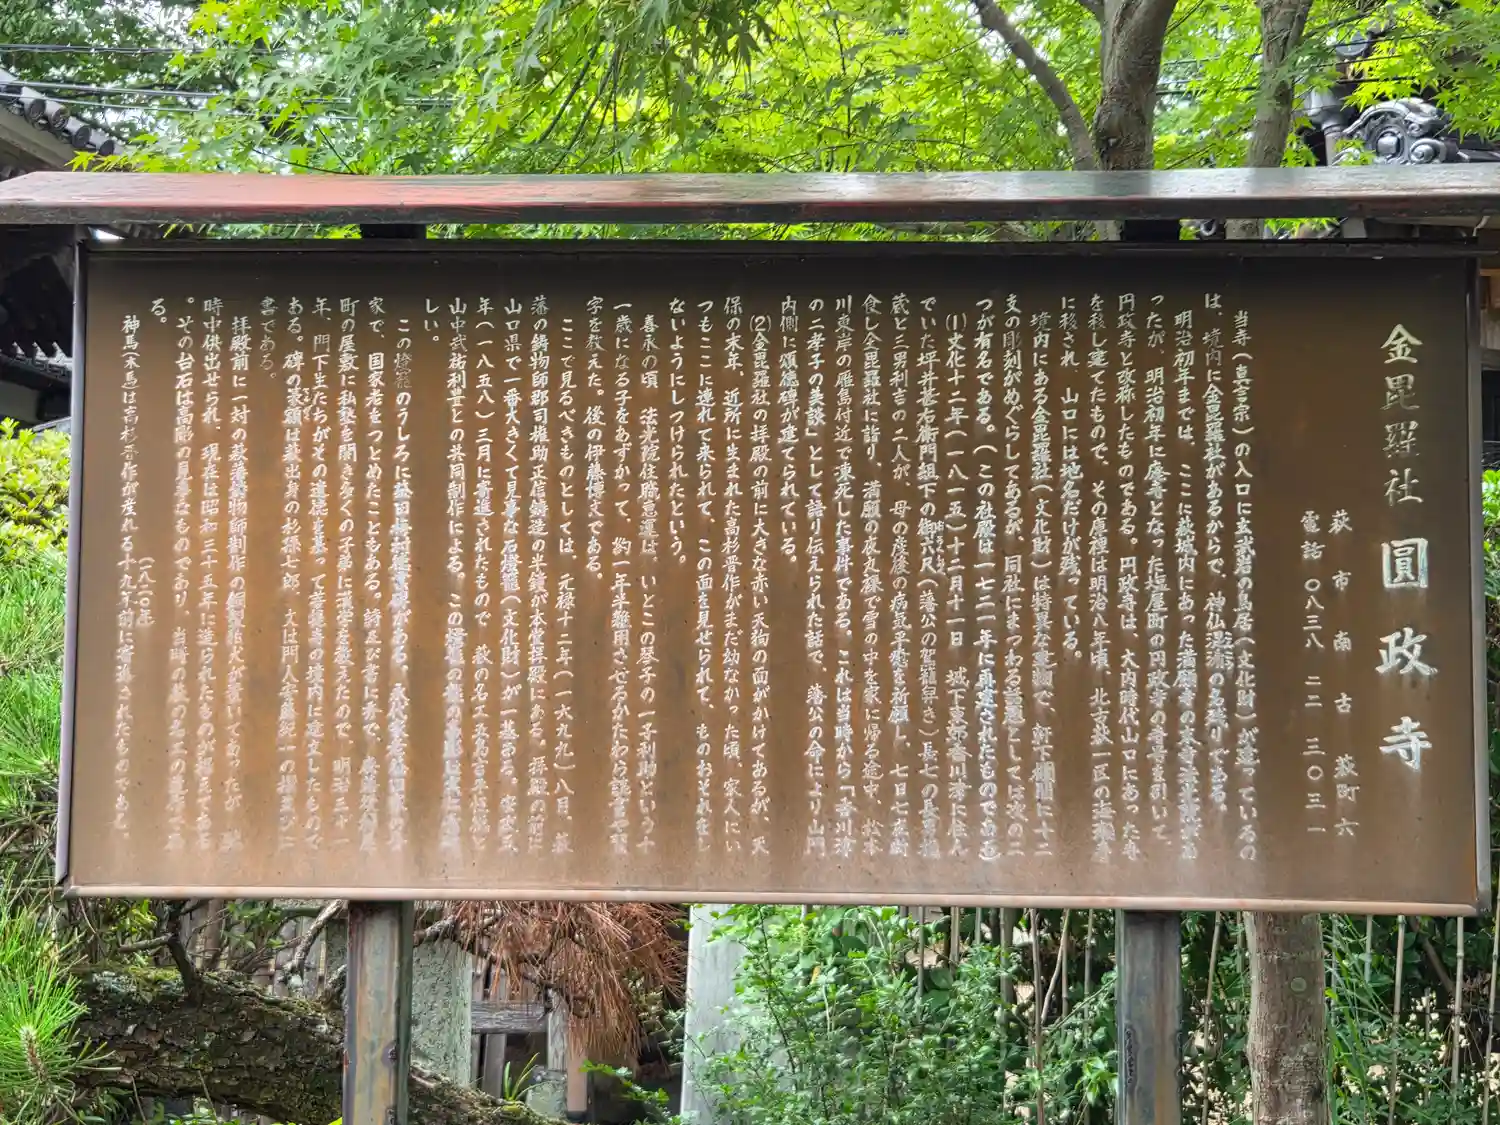 金毘羅社 圓政寺
萩市南古萩町六
電話 〇八三八 二二 三〇三一
当寺(真言宗)の入口に玄武岩の鳥居(文化財)が建っているの
は、境内に金毘羅社があるからで、神仏混淆の名残りである。
明治初年までは、ここに萩城内にあった満願寺の
ったが、明治初年に廃寺となった塩屋町の円政寺の寺号を引いて、
円政寺と改称したものである。円政寺は、大内時代山口にあった寺
を移し建てたもので、その庫裡は明治八年頃、北古萩一区の
に移され、山口には地名だけが残っている。
境内にある金毘羅社(文化財)は特異な建物で、軒下欄間に十二
支の彫刻がめぐらしてあるが、同社にまつわる話題としては次の二
つが有名である。(この社殿は一七二一年に再建されたものである)
(1)文化十二年(一八一五)十二月十一日 城下東郊香川津に住ん
でいた坪井甚右衛門組下の御六尺(藩公の駕籠舁き)長七の長男
蔵と三男利吉の二人が、母の産後の病気平癒を祈願し、七日七夜断
食し金毘羅社に詣り、満願の夜丸裸で雪の中を家に帰る途中、松本
川東岸の雁島付近で凍死した事件である。これは当時から「香川津
の二孝子の美談」として語り伝えられた話で、藩公の命により山門
内側に頌徳碑が建てられている。
(2)金毘羅社の拝殿の前に大きな赤い天狗の面がかけてあるが、天
保の末年、近所に生まれた高杉晋作がまだ幼なかった頃、家人にい
つもここに連れて来られて、この面を見せられて、ものおそれをし
ないようにしつけられたという。
嘉永の頃 法光院住職恵運は、いとこの琴子の一子利助という十
一歳になる子をあずかって、約一年半雑用させるかたわら読書や習
字を教えた。後の伊藤博文である。
ここで見るべきものとしては、元禄十二年(一六九九)八月、萩
藩の鋳物師郡司権助正信鋳造の半鐘が本堂拝殿にある。拝殿の前に
山口県で一番大きくて見事な石燈籠(文化財)が一基ある。安政五
年(一八五八)三月に寄進されたもので、萩の名工
山中武祐利豊との共同制作による。この燈籠の
しい。
この燈籠のうしろに
家で、国家老をつとめたこともある。詩歌び書に秀で、
町の屋敷に私塾を開き多くの子弟に漢学を教えたので、明治三十一
年、門下生たちがその遺徳を慕って菩提寺の境内に建立したもので
ある。碑の篆額は萩出身の杉孫七郎、文は門人安藤紀一の撰並びに
書である。
拝殿前に一対の萩藩鋳物師制作の銅製狛犬が置いてあったが、戦
時中供出せられ、現在は昭和三十五年に造られたものが
。その台石は高彫の見事なものであり、当時の萩の名工の
る。
(一八二〇年)
神馬(木馬)は高杉晋作が産れる十九年前に寄進されたものである。